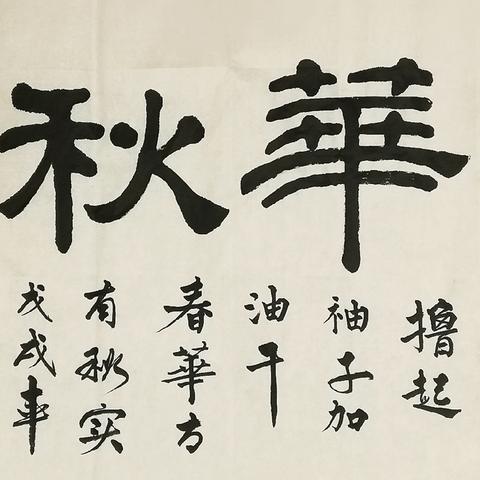 華秋
撸起
袖子加
油干
春華方
有秋实
戊戌年